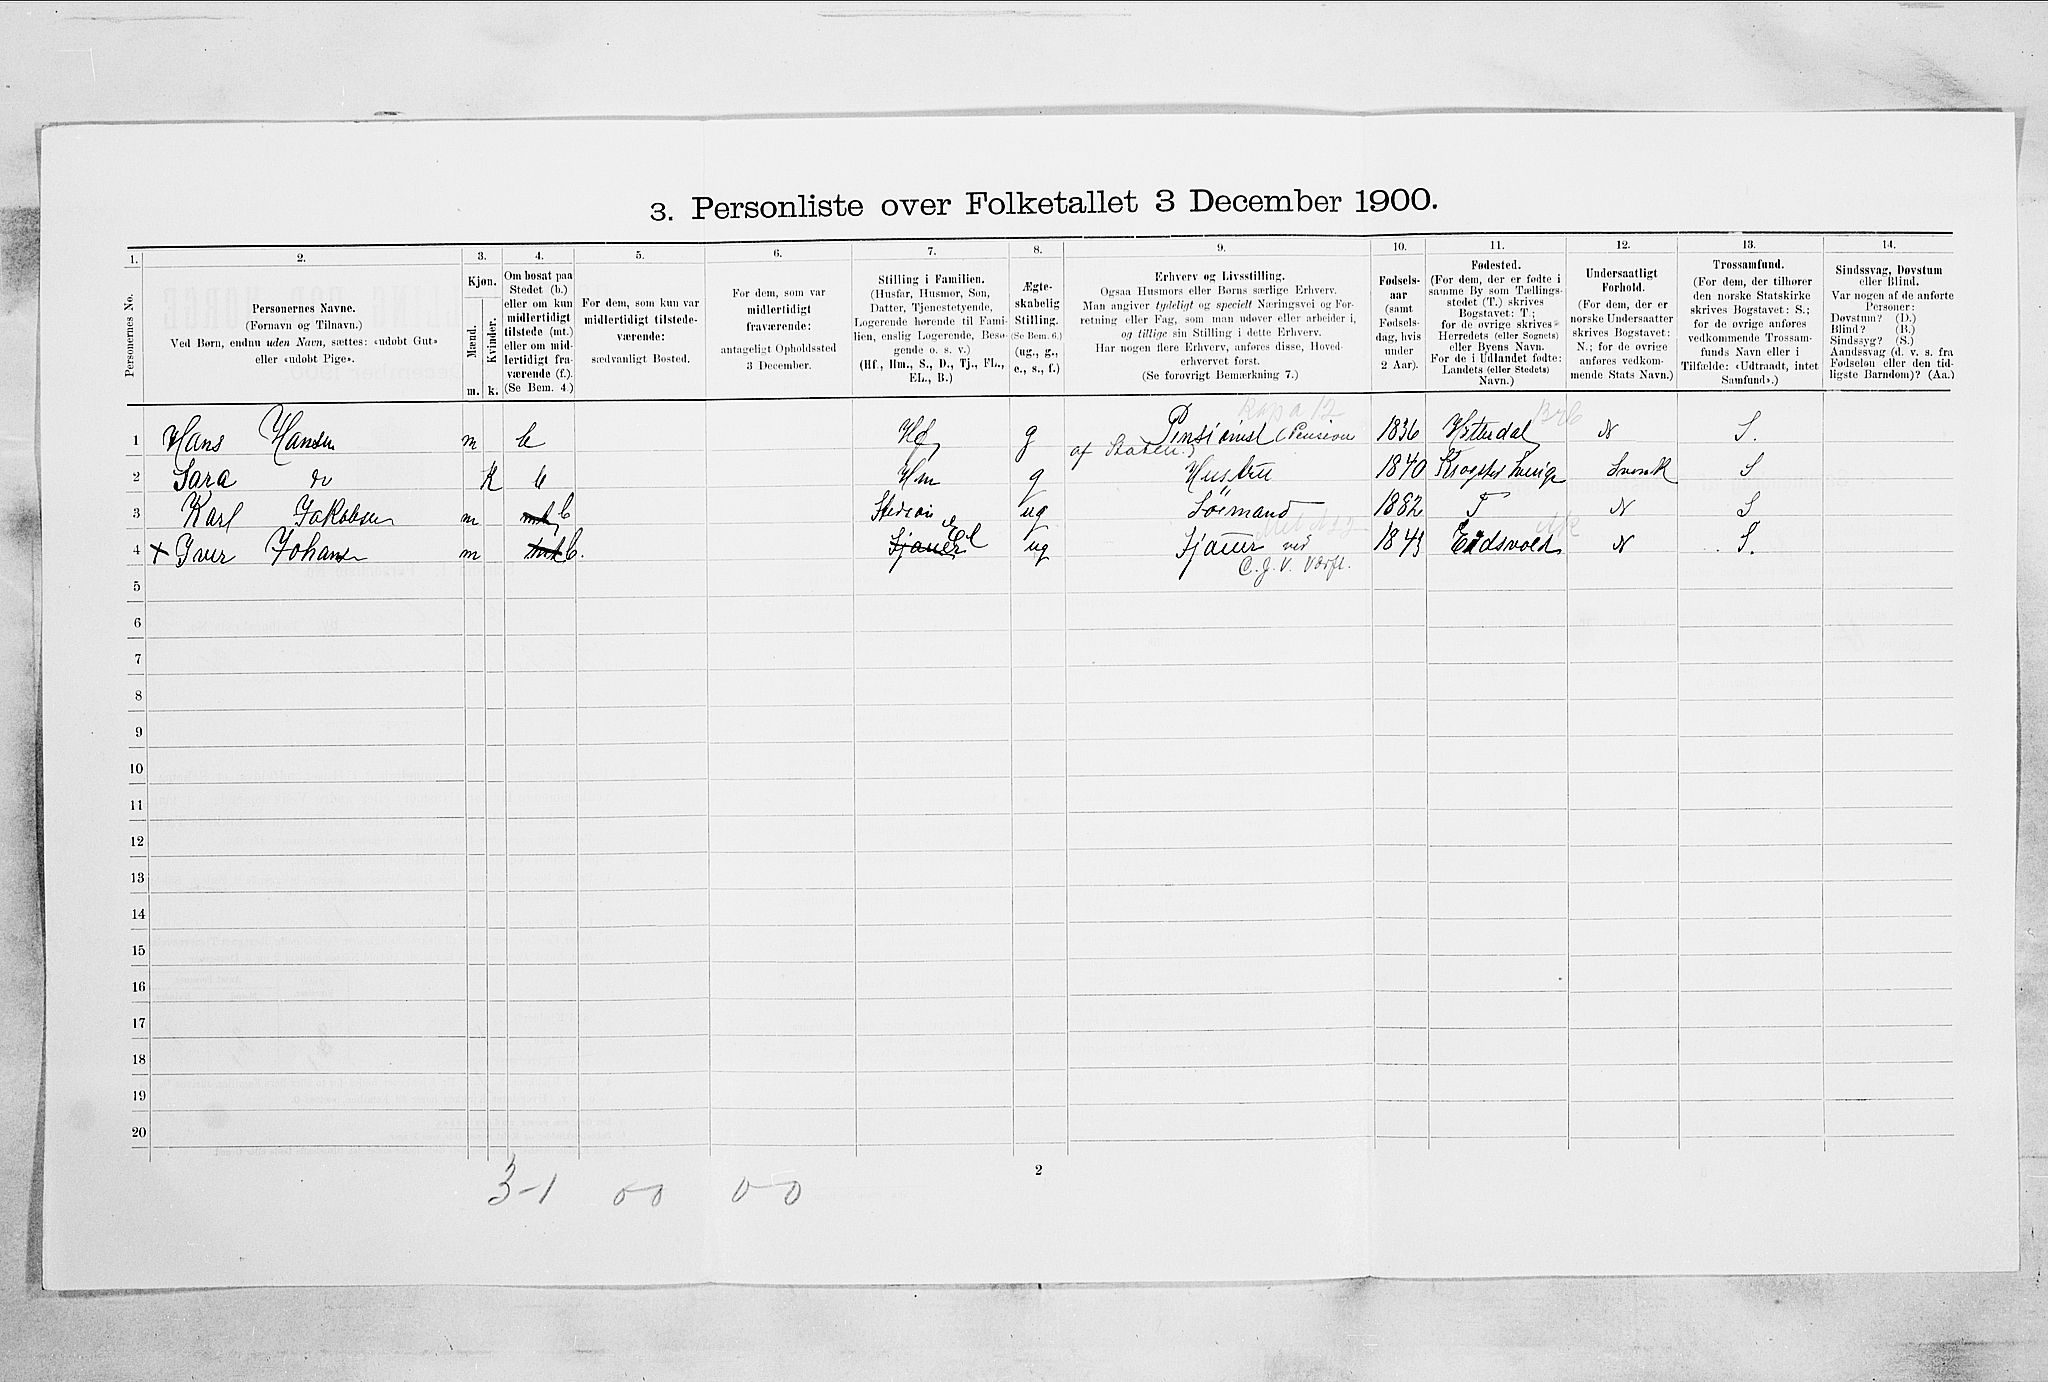 3. Personliste over Folketallet 3 December 1900.
1. 2. 3. 4. 5. 6. 7. 8. 9. 10. 11. 12. 13. 14.
Personernes No.
Personernes Navne.
(Fornavn og Tilnavn.)
Ved Børn, endnu uden Navn, sættes: «udøbt Gut»
eller «udøbt Pige».
Kjøn.
Mænd.
Kvinder.
m. k.
Om bosat paa
Stedet (b.)
eller om kun
midlertidigt
tilstede (mt.)
eller om mid-
lertidigt fra-
værende (f.).
(Se Bem. 4.)
For dem, som kun var
midlertidigt tilstede-
værende:
sædvanligt Bosted.
For dem, som var
midlertidigt
fraværende:
antageligt Opholdssted
3 December.
Stilling i Familien.
(Husfar, Husmor, Søn,
Datter, Tjenestetyende,
Logerende hørende til Fami-
lien, enslig Logerende, Besø-
gende o. s. v.)
(Hf., Hm., S., D., Tj., FL.,
EL., B.)
Ægte-
skabelig
Stilling.
(Se Bem. 6.)
(ug., g.,
e., s., f.)
Erhverv og Livsstilling.
Ogsaa Husmors eller Børns særlige Erhverv.
Man angiver tydeligt og specielt Næringsvei og For-
retning eller Fag, som man udøver eller arbeider i,
og tillige sin Stilling i dette Erhverv.
Har nogen flere Erhverv, anføres disse, Hoved-
erhvervet først.
(Se forøvrigt Bemærkning 7.)
Fødsels-
aar
(samt
Fødsels-
dag, hvis
under
2 Aar).
Fødested.
(For dem, der er fødte i
samme By som Tællings-
stedet (T.) skrives
Bogstavet: T.;
for de øvrige skrives
Herredets (eller Sognets)
eller Byens Navn.
For de i Udlandet fødte:
Landets (eller Stedets)
Navn.)
Undersaatligt
Forhold.
(For dem, der er
norske Undersaatter
skrives Bogstavet:
N.; for de øvrige
anføres vedkom-
mende Stats Navn.)
Trossamfund.
(For dem, der tilhører
den norske Statskirke
skrives Bogstavet: S.;
for de øvrige anføres
vedkommende Trossam-
funds Navn eller i
Tilfælde: «Udtraadt, intet
Samfund».)
Sindssvag, Døvstum
eller Blind.
Var nogen af de anførte
Personer:
Døvstum? (D.)
Blind? (B.)
Sindssyg? (S.)
Aandssvag (d. v. s. fra
Fødselen eller den tid-
ligste Barndom)? (Aa.)
1 Hans Hansen m b Hf g Pensionist (Pension 1836 N S.
af Staten.)
2 Sara do K b Hm g Hustru 1840 Svensk S
3 Karl Jakobsen m mt b ug Sømand 1882 T N S
4 x Iver Johansen m mt b. Sjauer el ug Sjauer ved 1843 Eidsvold N S.
C. J. V. Værft.
5
6
7
8
9
10
11
12
13
14
15
16
17
18
19
20
2
3-1 0-0 0-0